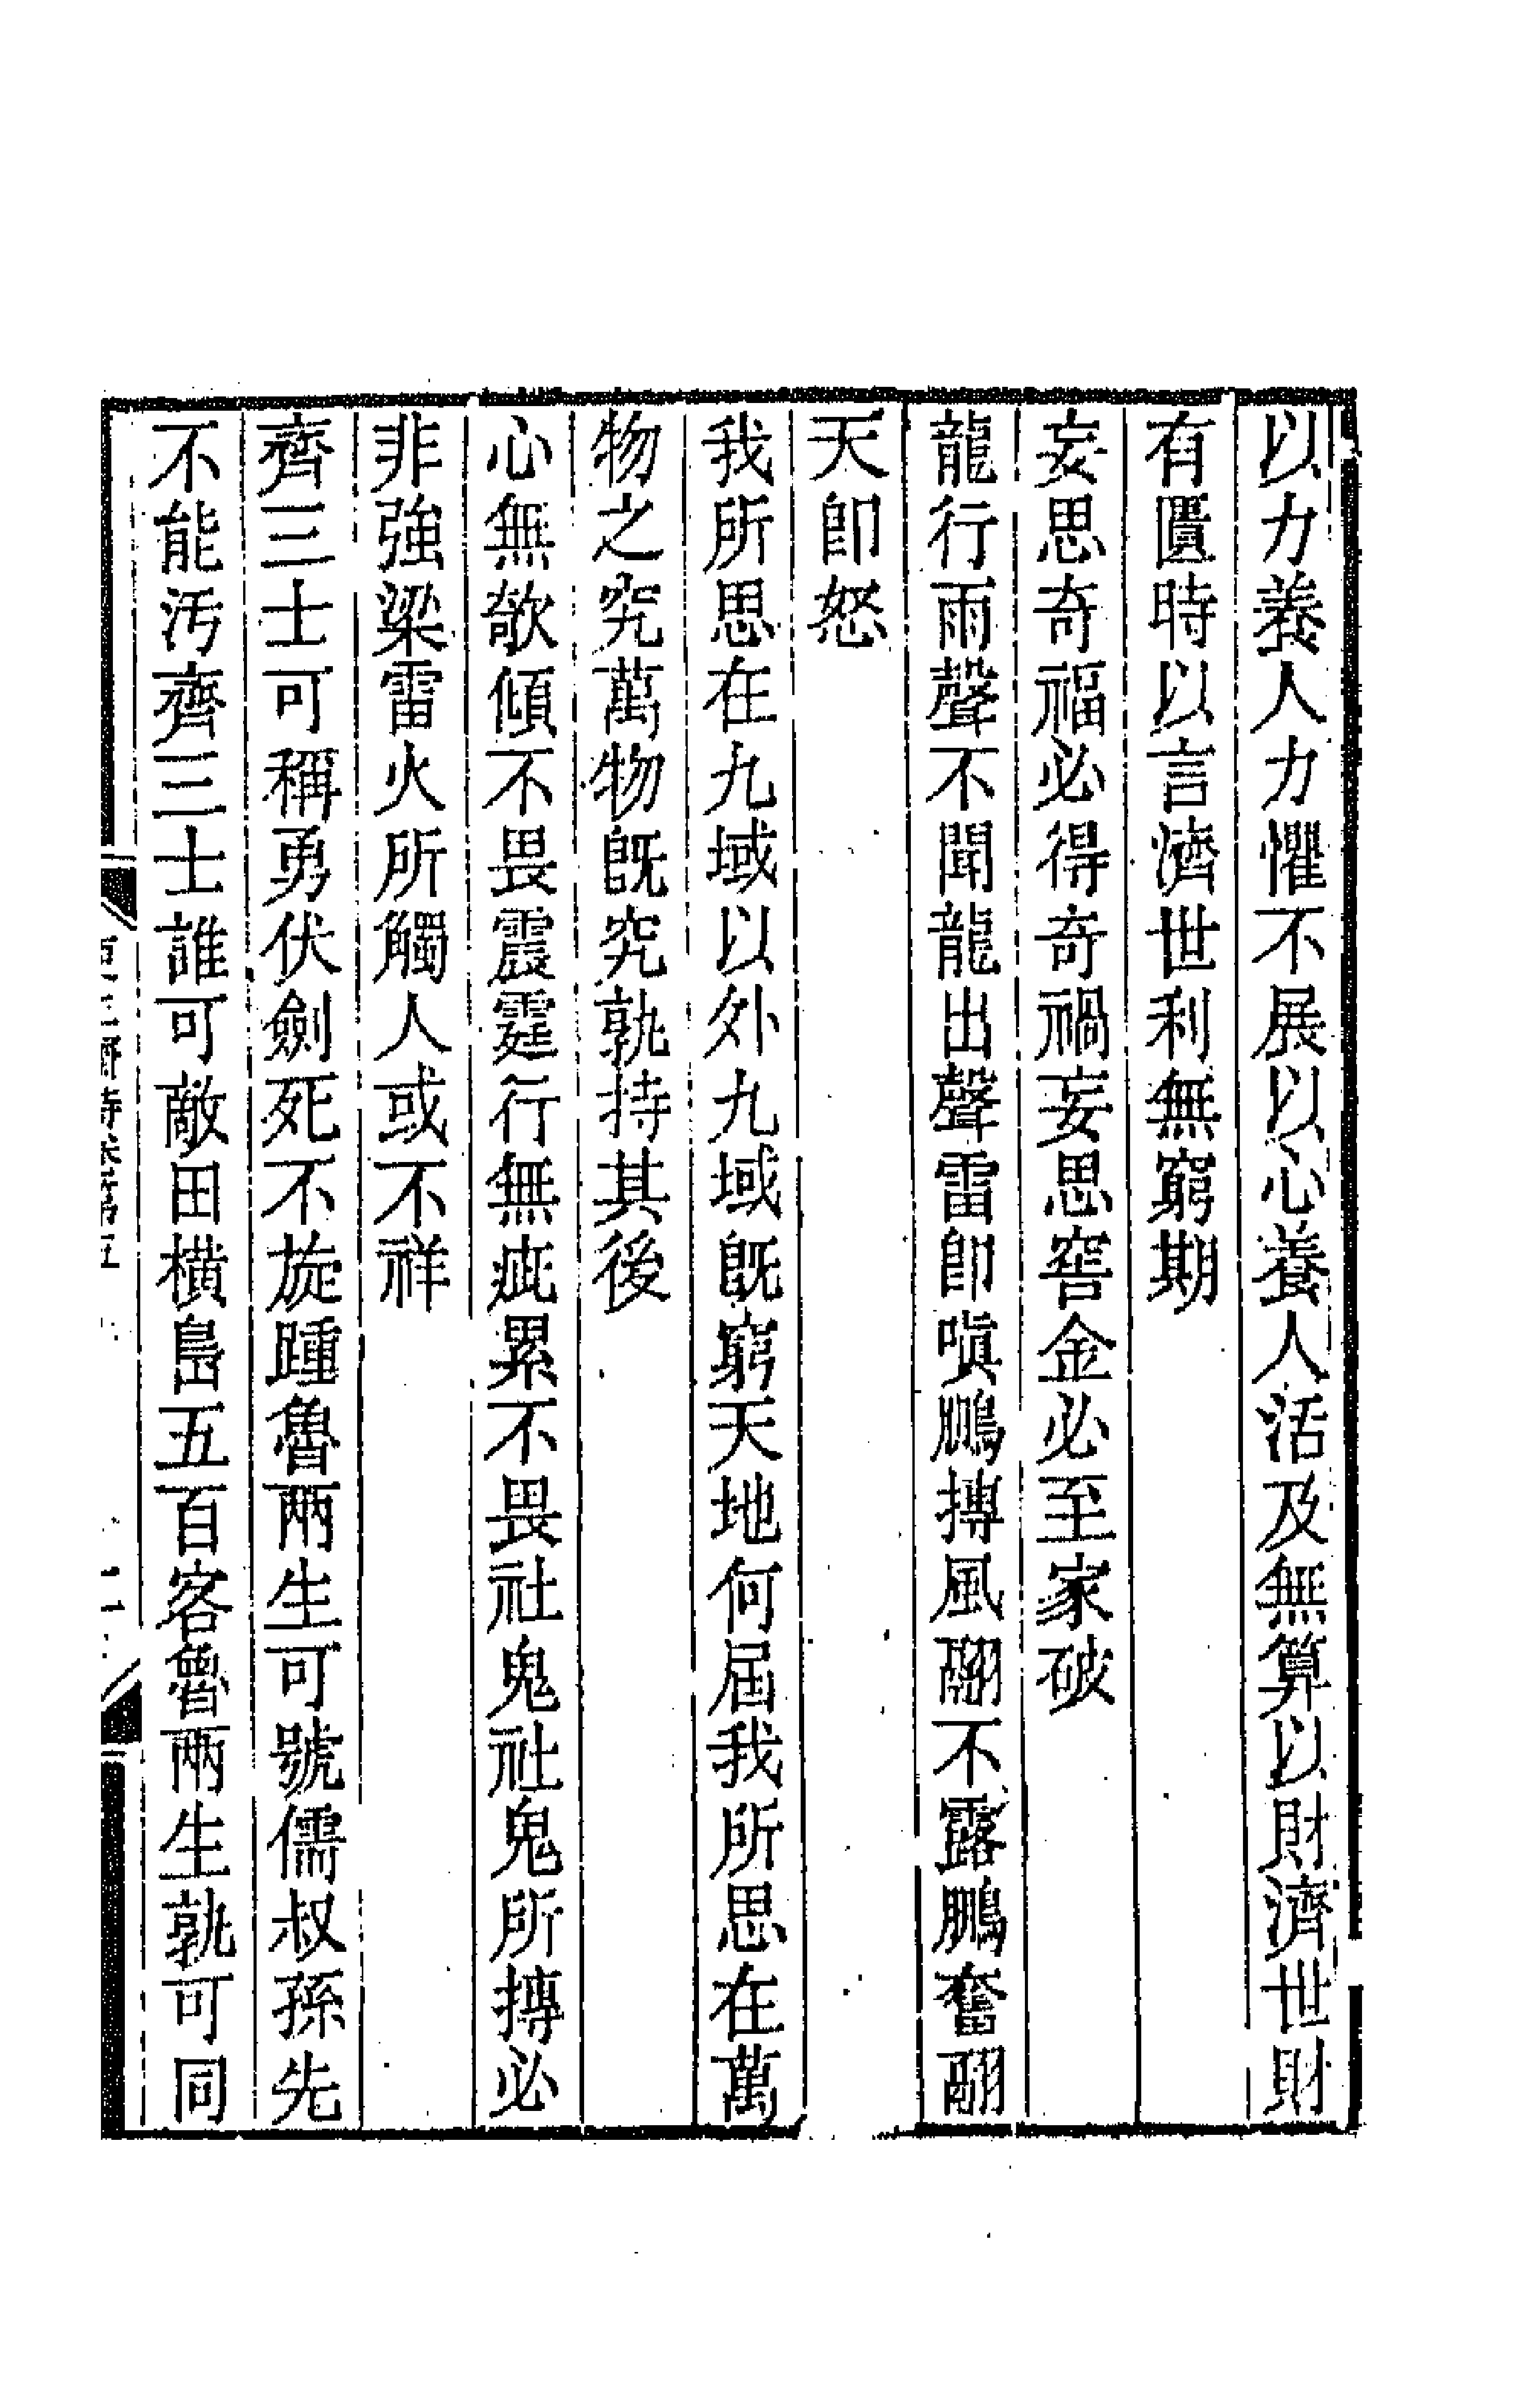 以力養人力懼不展以心養人活及無算以財濟世財
有匱時以言濟世利無窮期
妄思奇福必得奇禍妄思窖金必至家破
龍行雨聲不聞龍出聲雷卽嗔鵬摶風翮不露鵬奮翮
天卽怒
我所思在九域以外九域旣窮天地何屆我所思在萬
物之究萬物旣究孰持其後
心無欹傾不畏震霆行無疵累不畏社鬼社鬼所摶必
非強梁雷火所觸人或不祥
齊三士可稱勇伏劍死不旋踵魯兩生可號儒叔孫先
不能汚齊三士誰可敵田橫島五百客魯兩生孰可同